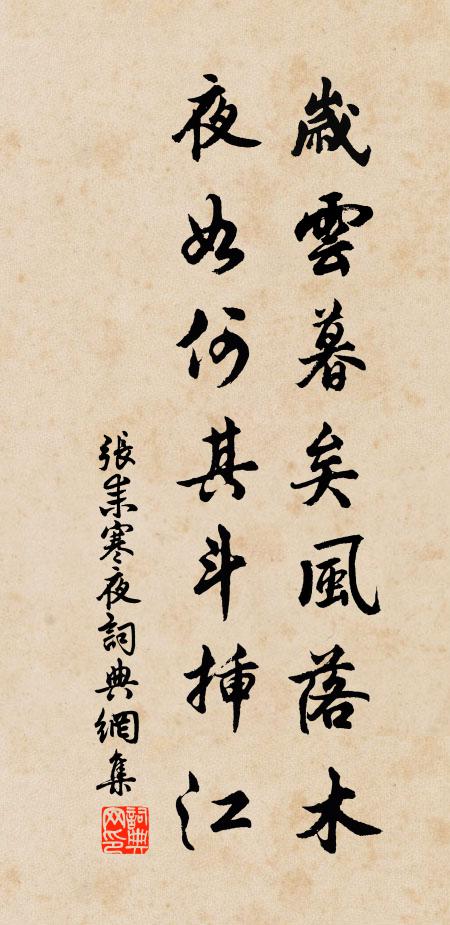 歲雲暮矣風落木
夜如何其斗插江
張耒寒夜詞典網集
詞典網印